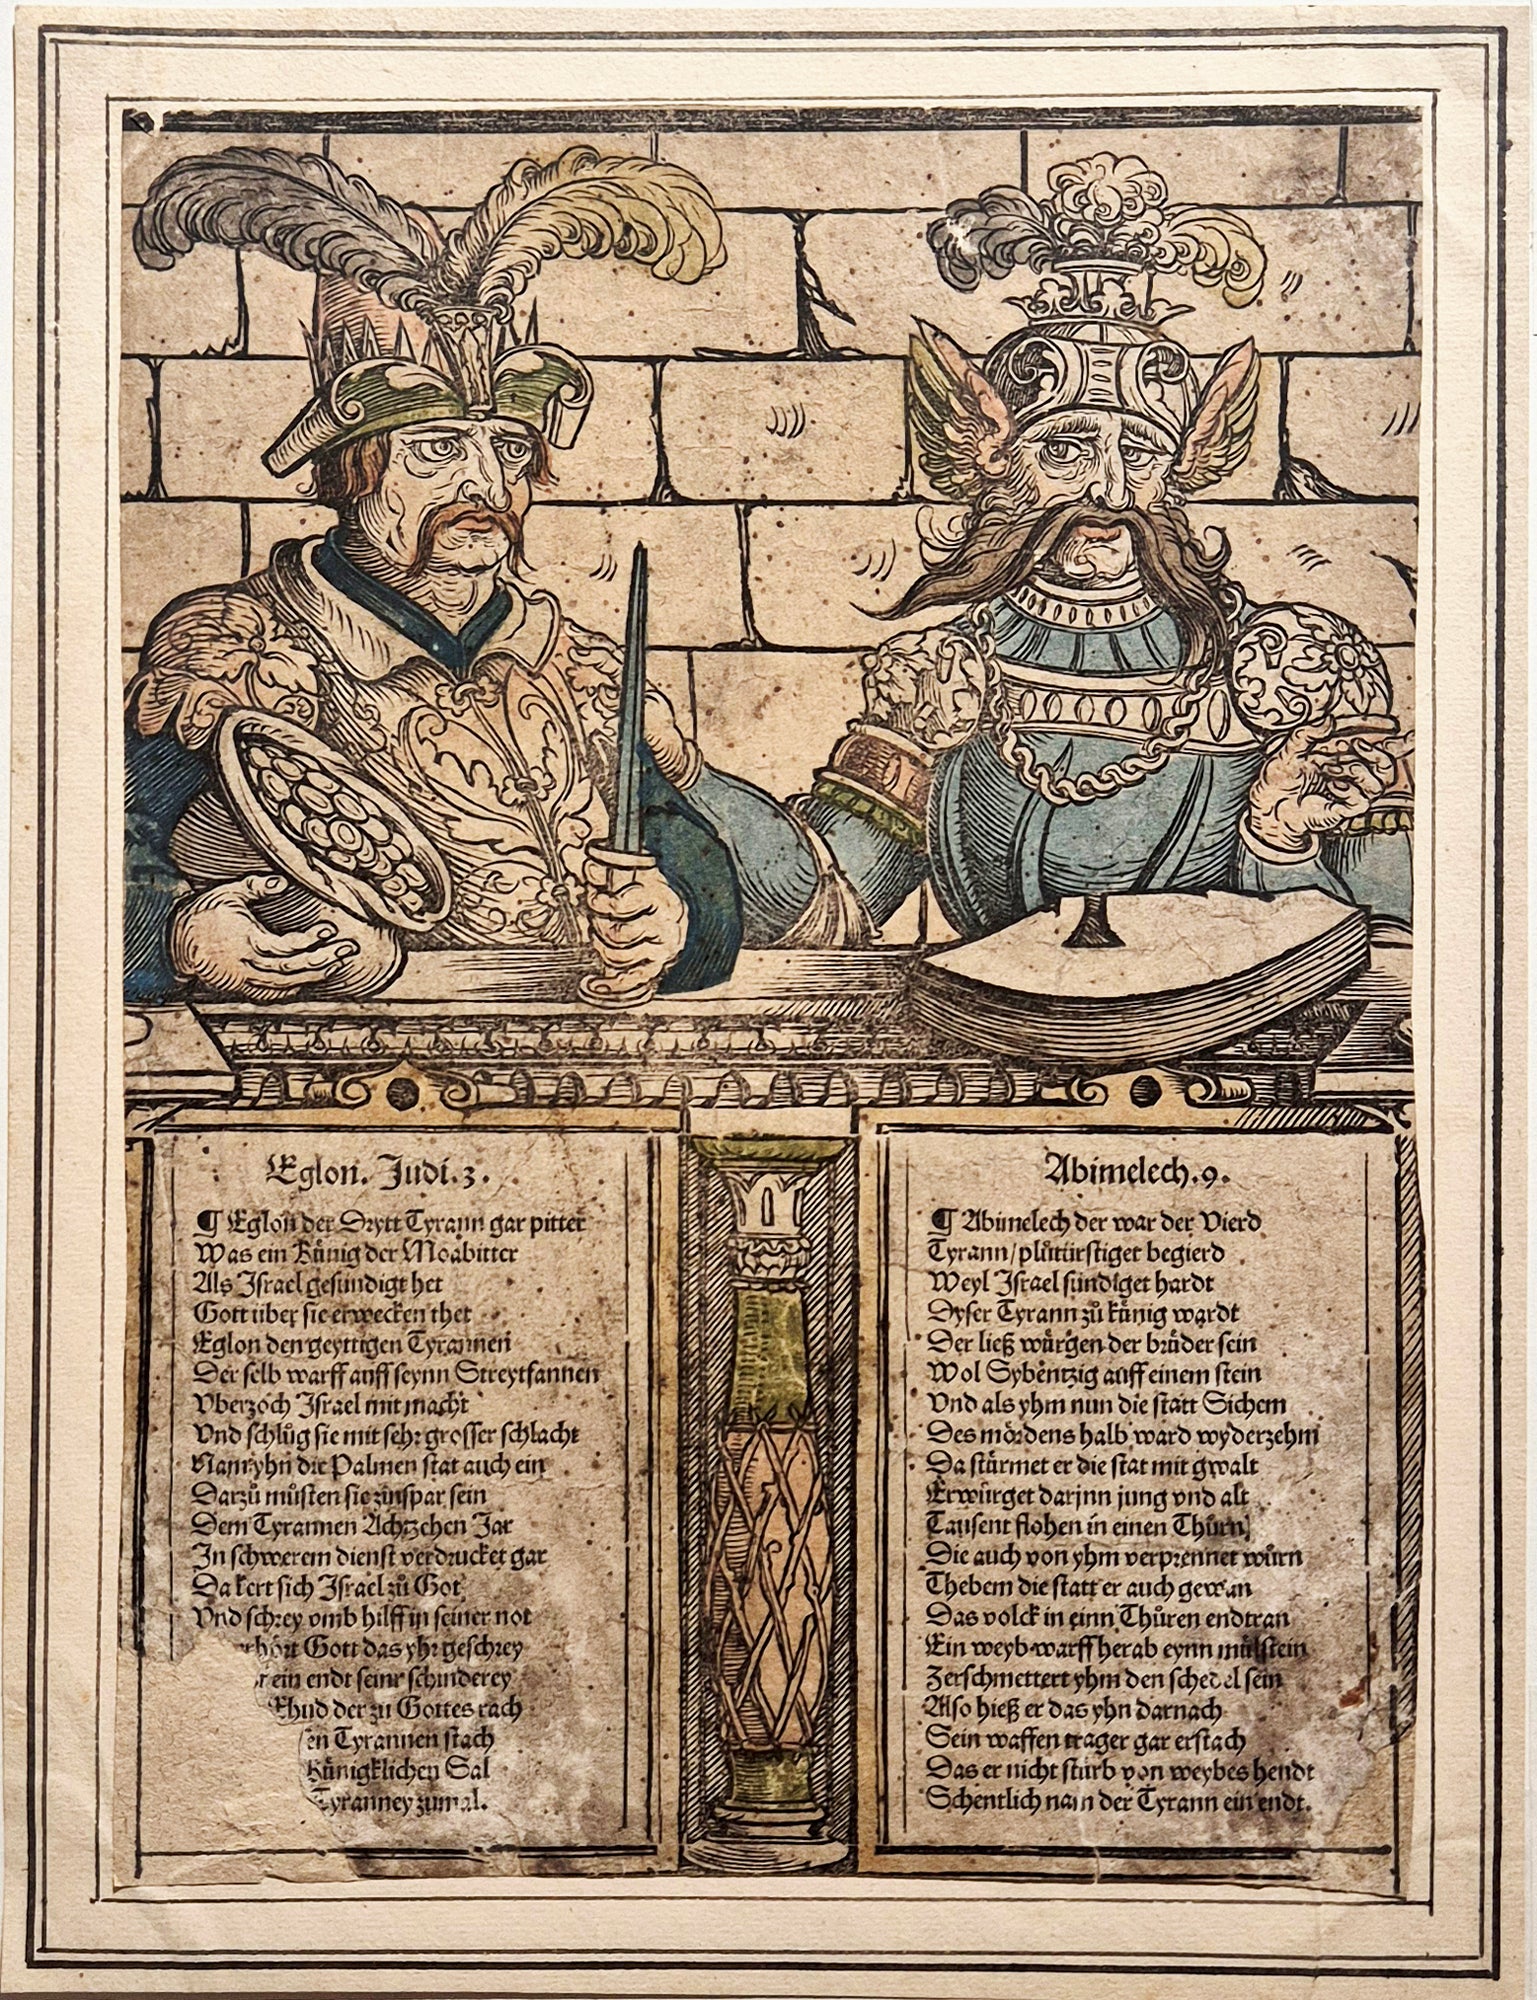 Eglon. Judi.3.
¶ Eglon der Drytt Tyrann gar pitter
Was ein Künig der Moabitter
Als Israel gesündigt het
Gott über sie erwecken thet
Eglon den geyttigen Tyrannen
Der selb warff auff seynn Streytfannen
Vberzoch Israel mit macht
Vnd schlůg sie mit sehr grosser schlacht
Nam yhn die Palmen stat auch ein
Darzů můsten sie zinspar sein
Dem Tyrannen Achtzehen Jar
In schwerem dienst verdrucket gar
Da kert sich Israel zů Got
Vnd schrey vmb hilff in seiner not
Gott das yhr geschrey
ein endt seinr schinderey
Ehud der zu Gottes rach
Tyrannen stach
Künigklichen Sal
Tyranney zumal.
Abimelech.9.
¶ Abimelech der war der Vierd
Tyrann/plůtürstiget begierd
Weyl Israel sündiget hardt
Dyser Tyrann zů künig wardt
Der ließ würgen der brüder sein
Wol Sybentzig auff einem stein
Vnd als yhm nun die statt Sichem
Des mördens halb ward wyderzehm
Da stürmet er die stat mit gwalt
Erwürget darjnn jung vnd alt
Tausent flohen in einen Thůrn
Die auch von yhm verprennet wůrn
Thebem die statt er auch gewan
Das volck in einn Thůren endtran
Ein weyb warff herab eynn mülstein
Zerschmettert yhm den schedel sein
Also hieß er das yhn darnach
Sein waffen trager gar erstach
Das er nicht stürb von weybes hendt
Schentlich nam der Tyrann ein endt.